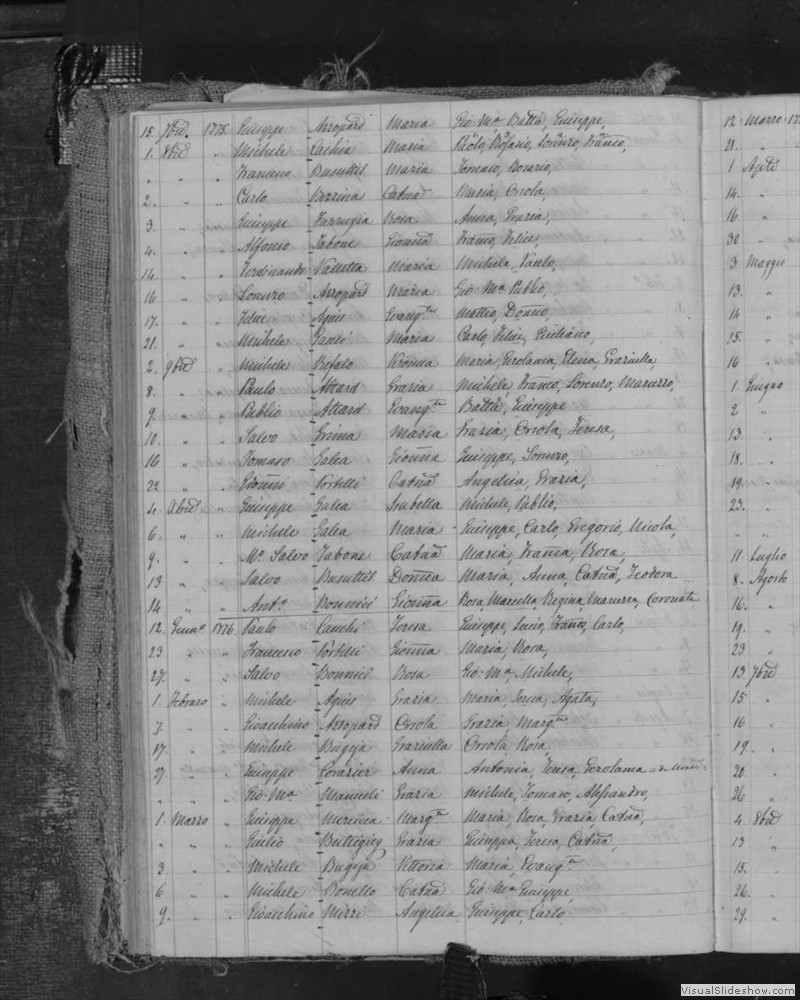 15. 7bre. 1775. Giuseppe Arropard Maria Gio: Ma Batta, Giuseppe,
1. 8bre " Michele Cachia Maria Paolo, Rosario, Lorenzo, Franco,
" " " Francesco Busuttil Maria Tomaso, Rosario,
2. " " Carlo Catna Maria, Orsola,
3. " " Giuseppe Farrugia Rosa Anna, Grazia,
4. " " Alfonso Tabone Gionna Franco, Felice,
14. " " Ferdinando Valletta Maria Michele, Paolo,
16 " " Lorenzo Arropard Maria Gio: Ma Publio,
17. " " Felice Agius Evangta Matteo,
21. " " Michele Gauci Maria Carlo, Felice, Giuliano,
2. 9bre " Michele Refalo Maria, Gerolama, Elena, Graziulla,
8. " " Paulo Attard Grazia Michele, Franco, Lorenzo,
9. " " Publio Attard Evangta Batta, Giuseppe
10. " " Salvo Grima Maria Grazia, Orsola, Teresa,
16 " " Tomaso Galea Gionna Giuseppe, Lorenzo,
22. " " Gionni Portelli Catna Angelica, Grazia,
4. Xbre " Giuseppe Galea Isabella Michele, Publio,
6. " " Michele Galea Maria Giuseppe, Carlo, Gregorio, Nicola,
9. " " Mo. Salvo Tabone Catna Maria, Rosa,
13 " " Salvo Busuttil Maria, Anna, Catna, Teodora
14 " " Anto. Bonnici Gionna Rosa, Marcella, Regina, Coronata
12. Gennao 1776. Paulo Cauchi Teresa Giuseppe, Lucio, Franco, Carlo,
23 " " Francesco Portelli Gionna Maria, Rosa,
27. " " Salvo Bonnici Rosa Gio: Ma Michele,
1. Febraro " Michele Agius Grazia Maria, Teresa, Agata,
7. " " Gioacchino Arropard Orsola Grazia, Margta
17. " " Michele Bugeja Graziulla Orsola, Rosa
27. " " Giuseppe Anna Antonia, Teresa, Gerolama
" " " Gio: Ma Grazia Michele, Tomaso, Alessandro,
1. Marzo " Giuseppe Margta Maria, Rosa, Grazia Catna,
" " " Giulio Buttigieg Grazia Giuseppa, Teresa, Catna,
3 " " Michele Bugeja Vittoria Maria, Evangta
6 " " Michele Bonello Catna Gio: Ma Giuseppe,
9. " " Gioacchino Mizzi Angelica Giuseppe, Carlo
12 Marzo 17
21. "
1 Aprle
14. "
16 "
30 "
3 Maggio
13. "
14 "
15. "
16 "
1. Giugno
2 "
13. "
18. "
19. "
23. "
" "
11 Luglio
8. Agosto
16. "
19. "
23. "
13. 7bre
15 "
16 "
19. "
20. "
26 "
4. 8bre
13 "
15. "
26. "
29. "
VisualSlideshow.com